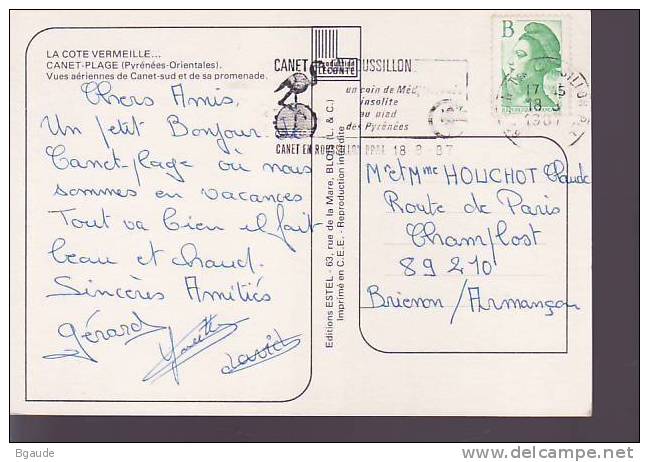 LA COTE VERMEILLE...
CANET-PLAGE (Pyrénées-Orientales).
Vues aériennes de Canet-sud et de sa promenade.
Chers Amis,
Un petit Bonjour de
Canet-plage où nous
sommes en vacances
Tout va bien il fait
beau et chaud.
Sincères Amitiés
Gérard
David
Production
LECONTE
Editions ESTEL - 63, rue de la Mare, BLOIS (L. & C.)
Imprimé en C.E.E. - Reproduction interdite
CANET ROUSSILLON
un coin de
insolite
au pied
des Pyrénées
CANET EN ROUSSILLON PPAL 18-8-87
B
17-45
18-8
1987
Mr et Mme HOUCHOT Claude
Route de Paris
Champlost
89210
Brienon/Armançon
Bgaude
www.delcampe.net